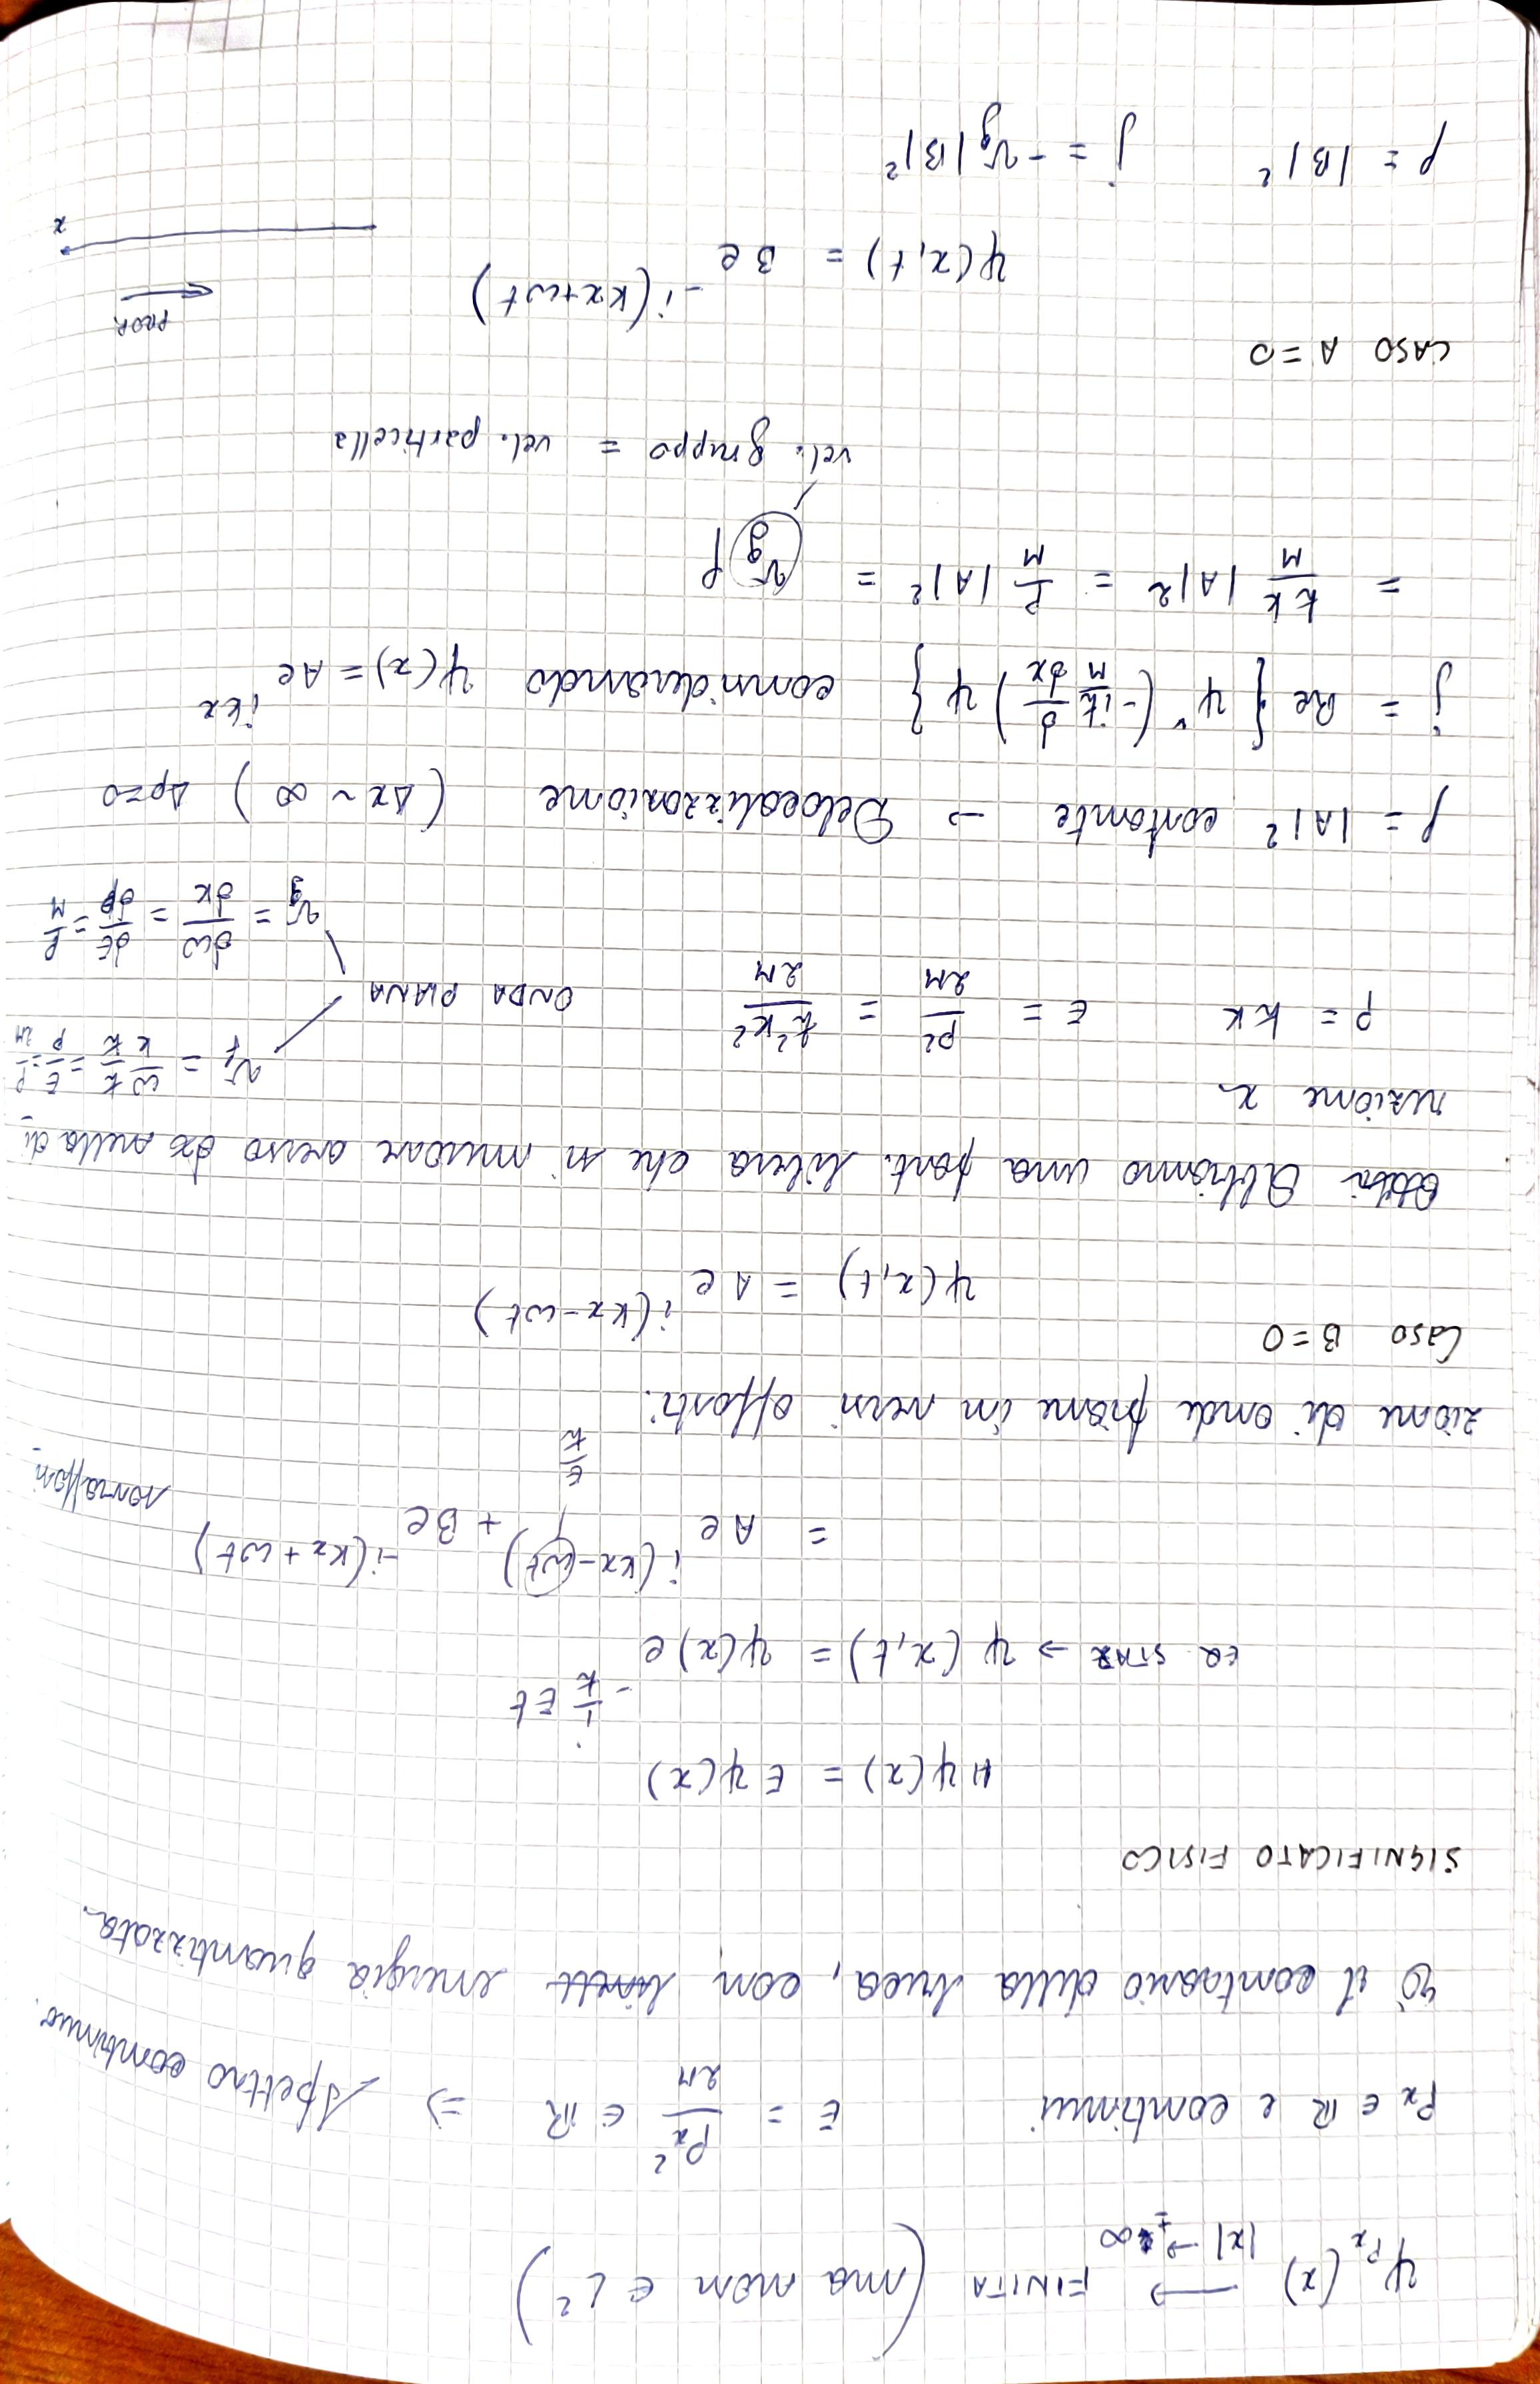 ψ_{Px}(x) ⟶ FINITA (ma non ∈ L²)
|x| → ±∞
Px ∈ ℝ e continui E = Px²/2M ∈ ℝ ⇒ Spettro continuo.
È il contrario della buca, con energia quantizzata.
SIGNIFICATO FISICO
Hψ(x) = Eψ(x)
EQ STAZ → ψ(x,t) = ψ(x) e^{-i/ħ Et}
= A e^{i(kx-ωt)} + B e^{-i(kx+ωt)} sovrapposi-
E/ħ
zione di onde piane in versi opposti.
Caso B=0
ψ(x,t) = A e^{i(kx-ωt)}
Abbiamo una part. libera che si muove verso dx nella di-
rezione x
v_f = ω/k ħ/ħ = E/p = p/2M
p = ħk E = p²/2M = ħ²k²/2M ONDA PIANA
v_g = ∂ω/∂k = ∂E/∂p = p/M
ρ = |A|² costante → Delocalizzazione (Δx ~ ∞) Δp=0
j = Re { ψ* (-iħ/M ∂/∂x) ψ } considerando ψ(x) = A e^{ikx}
= ħk/M |A|² = p/M |A|² = v_g ρ
vel. gruppo = vel. particella
CASO A=0
PROP.
ψ(x,t) = B e^{-i(kx+ωt)}
x
ρ = |B|² j = -v_g |B|²